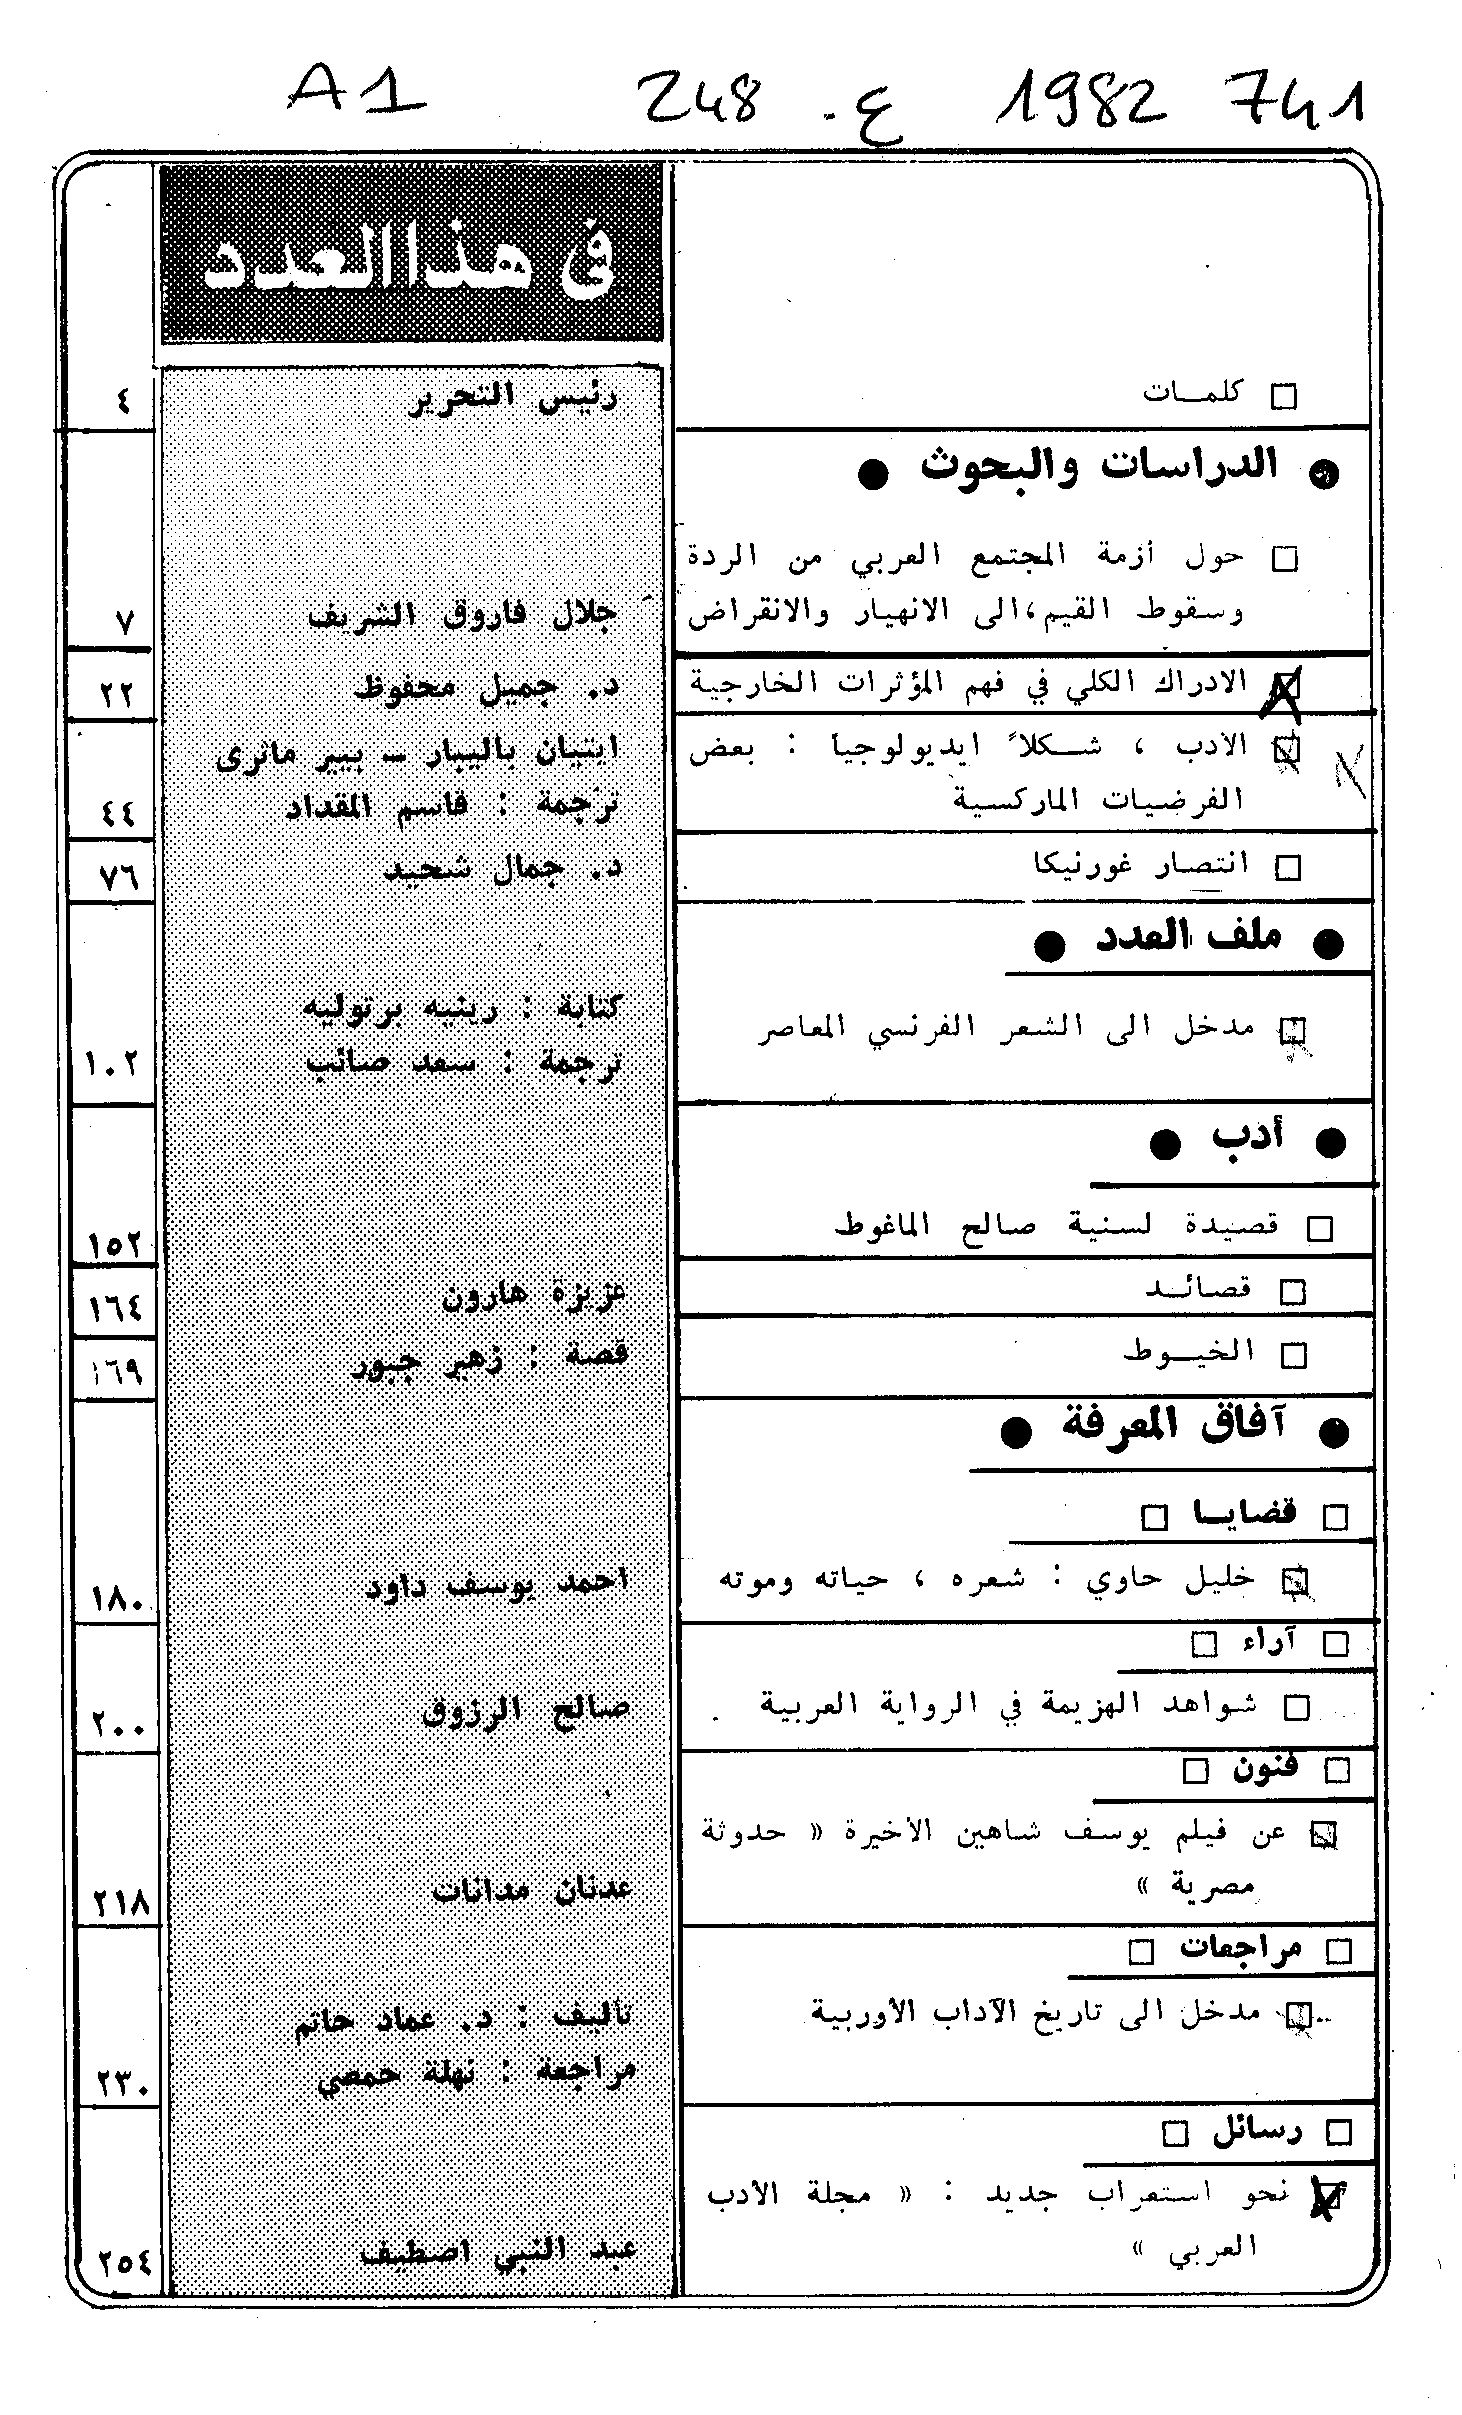 A1 248 ع. 1982 741
في هذا العدد
□ كلمـــات رئيس التحرير ٤
● الدراسات والبحوث ●
□ حول أزمة المجتمع العربي من الردة
وسقوط القيم، الى الانهيار والانقراض جلال فاروق الشريف ٧
□ الادراك الكلي في فهم المؤثرات الخارجية د. جميل محفوظ ٢٢
□ الأدب ، شـــكلاً ايديولوجياً : بعض ايتيان باليبار ــ بيير ماشرى
الفرضيات الماركسية ترجمة : قاسم المقداد ٤٤
□ انتصار غورنيكا د. جمال شحيد ٧٦
● ملف العدد ●
□ مدخل الى الشعر الفرنسي المعاصر كتابة : رينيه برتوليه
ترجمة : سعد صائب ١٠٢
● أدب ●
□ قصيدة لسنية صالح الماغوط ١٥٢
□ قصائــد عزيزة هارون ١٦٤
□ الخيــوط قصة : زهير جبور ١٦٩
● آفاق المعرفة ●
□ قضايــا □
□ خليل حاوي : شعره ، حياته وموته احمد يوسف داود ١٨٠
□ آراء □
□ شواهد الهزيمة في الرواية العربية صالح الرزوق ٢٠٠
□ فنون □
□ عن فيلم يوسف شاهين الأخيرة « حدوثة
مصرية » عدنان مدانات ٢١٨
□ مراجعات □
□ مدخل الى تاريخ الآداب الأوربية تأليف : د. عماد حاتم
مراجعة : نهلة حمصي ٢٣٠
□ رسائل □
□ نحو استعراب جديد : « مجلة الأدب
العربي » عبد النبي اصطيف ٢٥٤